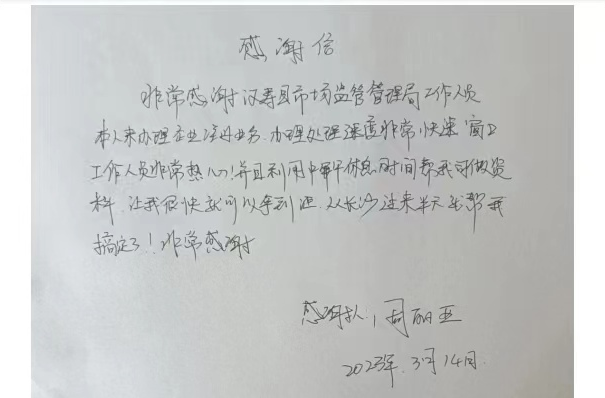 感谢信
非常感谢汉寿县市场监管管理局工作人员
本人来办理企业 业务,办理处理速度非常快速,窗口
工作人员非常热心!并且利用中午休息时间帮我司做资
料,让我很快就可以拿到证,从长沙过来半天就帮我
搞定了!非常感谢
感谢人:周丽亚
2023年.3月14日.